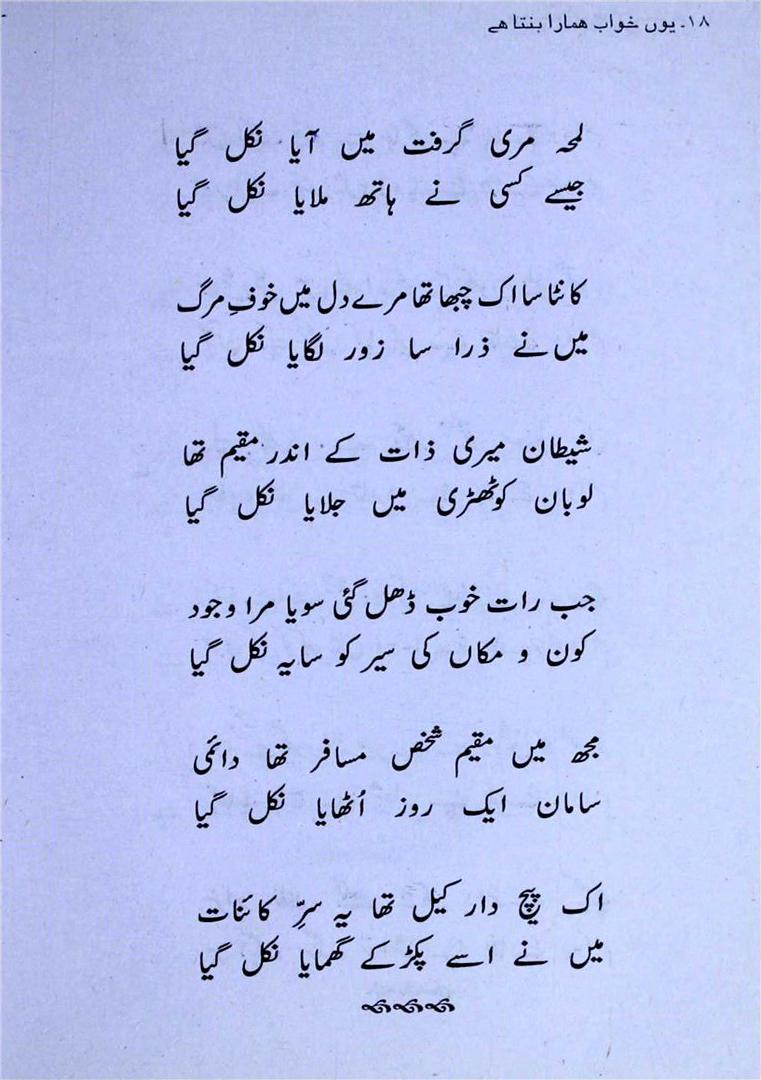 ۱۸۔ یوں خواب ھمارا بنتا ھے
لمحہ مری گرفت میں آیا نکل گیا
جیسے کسی نے ہاتھ ملایا نکل گیا
کانٹا سا اک چبھا تھا مرے دل میں خوفِ مرگ
میں نے ذرا سا زور لگایا نکل گیا
شیطان میری ذات کے اندر مقیم تھا
لوبان کوٹھڑی میں جلایا نکل گیا
جب رات خوب ڈھل گئی سویا مرا وجود
کون و مکاں کی سیر کو سایہ نکل گیا
مجھ میں مقیم شخص مسافر تھا دائمی
سامان ایک روز اُٹھایا نکل گیا
اک پیچ دار کیل تھا یہ سرِّ کائنات
میں نے اسے پکڑ کے گھمایا نکل گیا